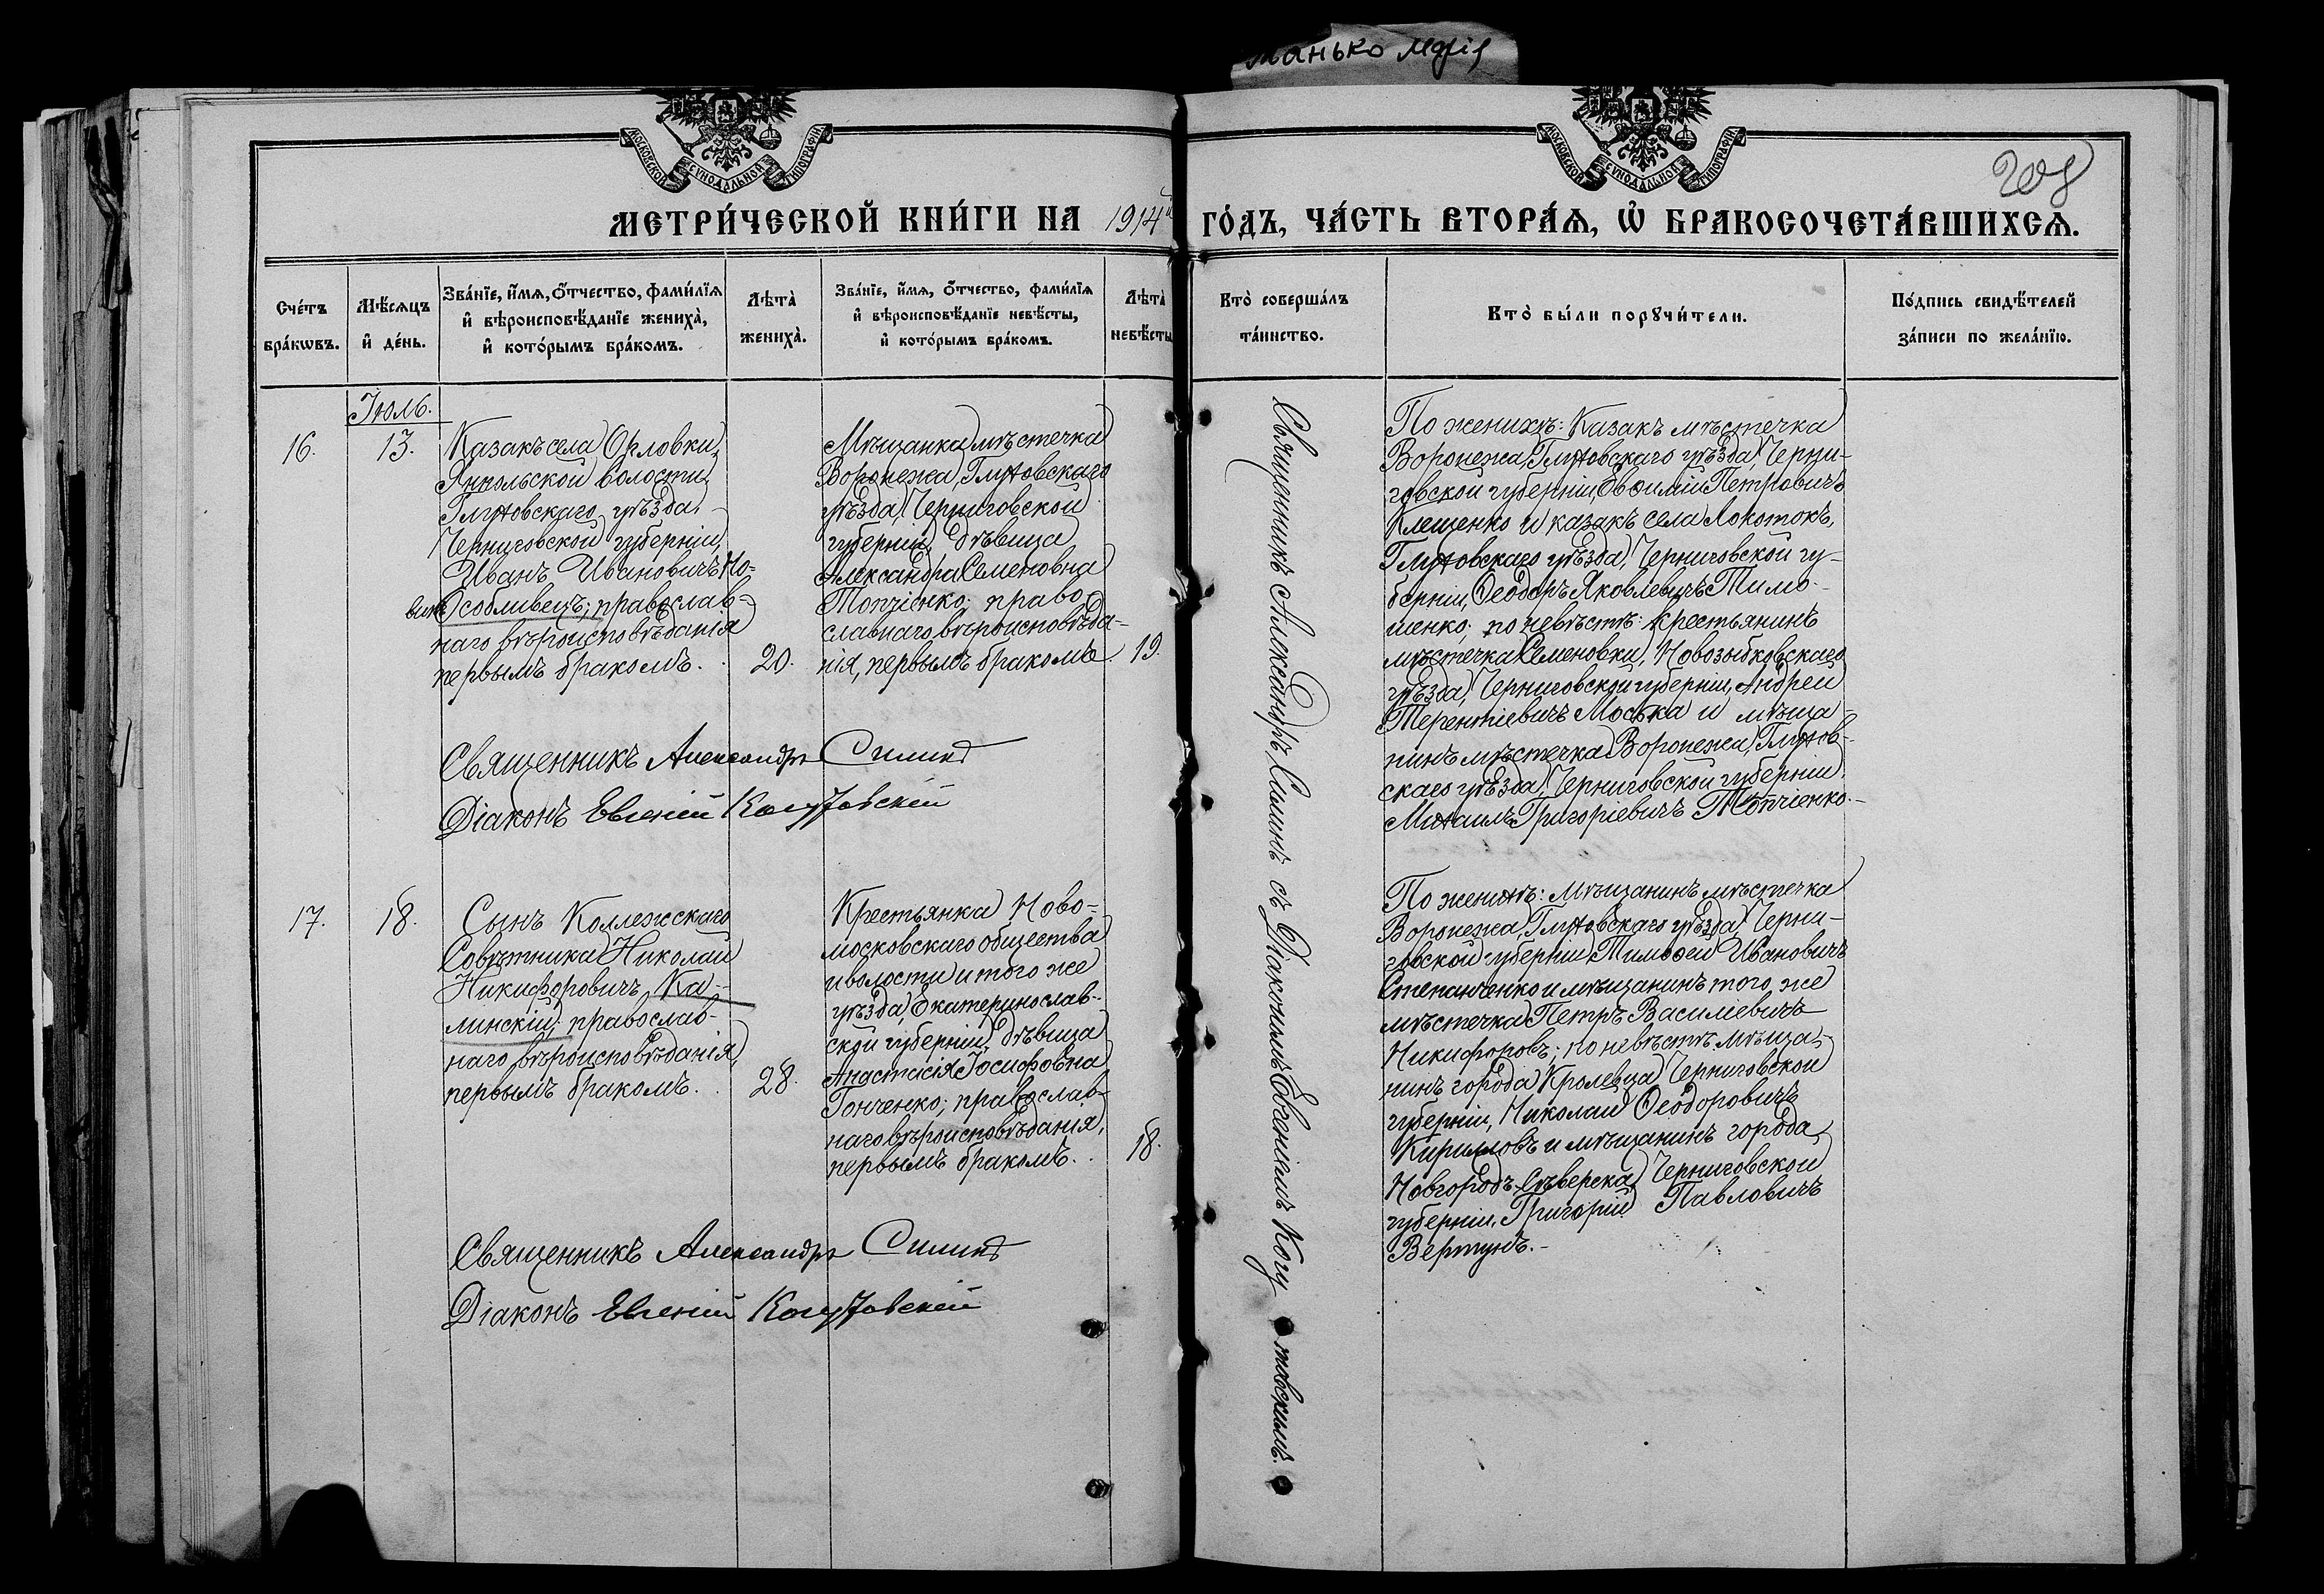 манько марія
МОСКОВСКОЙ СѴНОДАЛЬНОЙ ТИПОГРАФІИ
МОСКОВСКОЙ СѴНОДАЛЬНОЙ ТИПОГРАФІИ
208
МЕТРИ́ЧЕСКОЙ КНИ́ГИ НА 1914й ГО́ДЪ, ЧА́СТЬ ВТОРА́Ѧ, Ѡ҆ БРАКОСОЧЕТА́ВШИХСѦ.
Сче́тъ
бра́кѡвъ.
Мѣ́сѧцъ
и҆ де́нь.
Зва́нїе, и҆́мѧ, о҆́тчество, фами́лїѧ
и҆ вѣроисповѣ́данїе жениха̀,
и҆ кото́рымъ бра́комъ.
Лѣта̀
жениха̀.
Зва́нїе, и҆́мѧ, о҆́тчество, фами́лїѧ
и҆ вѣроисповѣ́данїе невѣ́сты,
и҆ кото́рымъ бра́комъ.
Лѣта̀
невѣ́сты
Кто̀ соверша́лъ
та́инство.
Кто̀ бы́ли порꙋчи́тели.
По́дпись свидѣ́телей
за́писи по жела́нїю.
Іюль.
16.
13.
Казакъ села Орловки,
Ямпольской волости,
Глуховскаго уѣзда,
Черниговской губерніи,
Иванъ Ивановичъ Но-
викъ Особливецъ; православ-
наго вѣроисповѣданія
первымъ бракомъ.
20.
Мѣщанка мѣстечка
Воронежа, Глуховскаго
уѣзда, Черниговской
губерніи, дѣвица
Александра Семеновна
Топчіенко; право-
славнаго вѣроисповѣда-
нія, первымъ бракомъ.
19.
Священникъ Александръ Симинъ
Діаконъ Евгеній Когутовскій
Священникъ Александръ Симинъ съ Діакономъ Евгеніемъ Когу товскимъ.
По женихѣ: Казакъ мѣстечка
Воронежа, Глуховскаго уѣзда, Черни-
говской губерніи, Евѳимій Петровичъ
Клещенко и казакъ села Локотокъ,
Глуховскаго уѣзда, Черниговской гу-
берніи, Ѳеодоръ Яковлевичъ Тимо-
шенко; по невѣстѣ: Крестьянинъ
мѣстечка Семеновки, Новозыбковскаго
уѣзда, Черниговской губерніи, Андрей
Терентіевичъ Моська и мѣща-
нинъ мѣстечка Воронежа, Глухов-
скаго уѣзда, Черниговской губерніи,
Михаилъ Григоріевичъ Топчіенко.-
17.
18.
Сынъ Коллежскаго
Совѣтника Николай
Никифоровичъ Ка-
линскій; православ-
наго вѣроисповѣданія,
первымъ бракомъ.
28.
Крестьянка Ново-
московскаго общества
и волости и того же
уѣзда, Екатеринослав-
ской губерніи, дѣвица
Анастасія Іосифовна
Гонченко; православ-
наго вѣроисповѣданія,
первымъ бракомъ.
18.
Священникъ Александръ Симинъ
Діаконъ Евгеній Когутовскій
По женихѣ: Мѣщанинъ мѣстечка
Воронежа, Глуховскаго уѣзда, Черни-
говской губерніи, Тимоѳей Ивановичъ
Степанченко и мѣщанинъ того же
мѣстечка Петръ Василіевичъ
Никифоровъ; по невѣстѣ: мѣща-
нинъ города Кролевца, Черниговской
губерніи, Николай Ѳеодоровичъ
Кирилловъ и мѣщанинъ города
Новгородъ-Сѣверска, Черниговской
губерніи, Григорій Павловичъ
Вертунъ.-